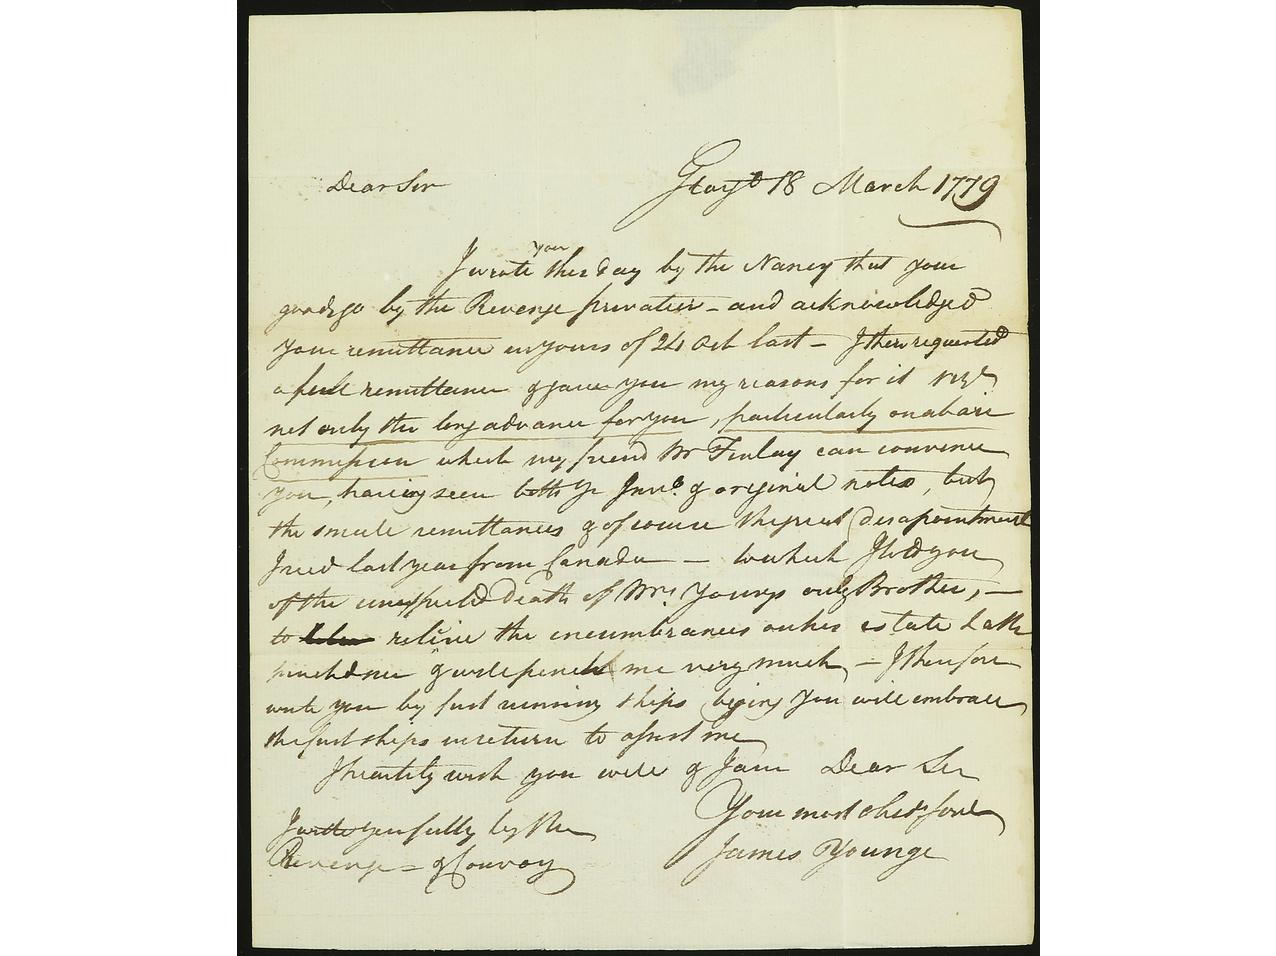 Dear Sir
18 March 1779
your
I wrote this day by the Nancy that your
goods go by the Revenge privatier – and acknowledged
your remittance in yours of 24 Oct last – I then requested
a full remittance & gave you my reasons for it vizt
not only the long advance for you, particularly on a bare
Commission which my friend Mr Finlay can convince
you, having seen both ye Invs. & original notes, but
the small remittances & of course the great disapointment
I met last year from Canada – to which I told you
of the unexpected Death of Mrs. Youngs only Brother, –
to relieve the encumbrances on his estate hath
much & me very much, – I therefore
write you by fast running ships beging you will embrace
the first ships in return to assist me
I heartily wish you well & I am Dear Sir
Your most obedt. Servt
James Younge
I write you fully by the
Revenge – & Convoy